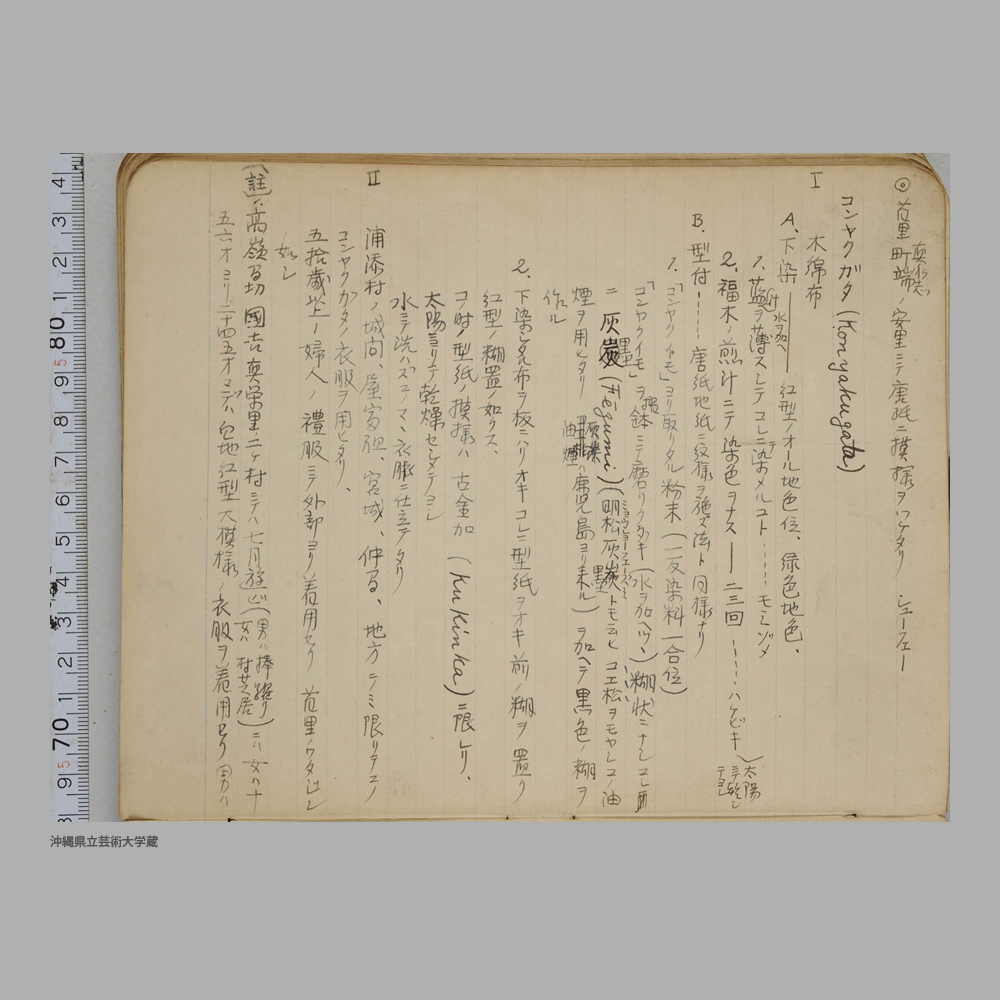 ◎首里町端ノ安里ニテ唐紙ニ模様ヲツケタリ シューフェー
コンヤクガタ (Konyakugata)
I 木綿布
A、下染 —— 紅型ノオール地色位、緑色地色、
1. 藍ヲ薄スレテコレニテ染メルコト…… モミゾメ
水ヲ加ヘ
2. 福木ノ煎汁ニテ染色ヲナス —— 二三回 …… ハケビキ
太陽ニテ乾シテヨシ
B. 型付…… 唐紙地紙ニ紋様ヲ施ス法ト同様ナリ
1. 「コンヤクイモ」ヨリ取リタル粉末 (一反染料一合位)
「コンヤクイモ」ヲ擂鉢ニテ磨リクダキ (水ヲ加ヘツヽ) 糊状ニナシコレ
ニ 灰墨 (Hegumi) (明松灰墨トモ云ヒ コエ松ヲモヤシコノ油
煙ヲ用ヒタリ 鹿児島ヨリ来ル) ヲ加ヘテ黒色ノ糊ヲ
作ル
2. 下染シタル布ヲ板ニハリオキコレニ型紙ヲオキ前ノ糊ヲ置ク
紅型ノ糊置ノ如クス、
コノ時ノ型紙ノ模様ハ古金加 (Kukinka) ニ限レリ、
太陽ニヨリテ乾燥セシメテヨシ
水ニテ洗ハズコノマヽ衣服ニ仕立テタリ
II 浦添村ノ城間、屋富祖、宮城、仲西、地方ニノミ限リテコノ
コンヤクガタノ衣服ヲ用ヒタリ、
五拾歳以上ノ婦人ノ禮服ニテ外部ヨリ着用セリ 首里ノワタジン
如シ
〔註〕、高嶺 國吉真栄里ニケ村ニテハ七月遊ビ (男ハ棒踊リ 女ハ村芝居) ニハ女ハ十
五六才ヨリ二十四五才マデハ白地紅型大模様ノ衣服ヲ着用セリ男ハ
4 3 2 1 80 9 8 7 6 5 4 3 2 1 70 9 8
沖縄県立芸術大学蔵